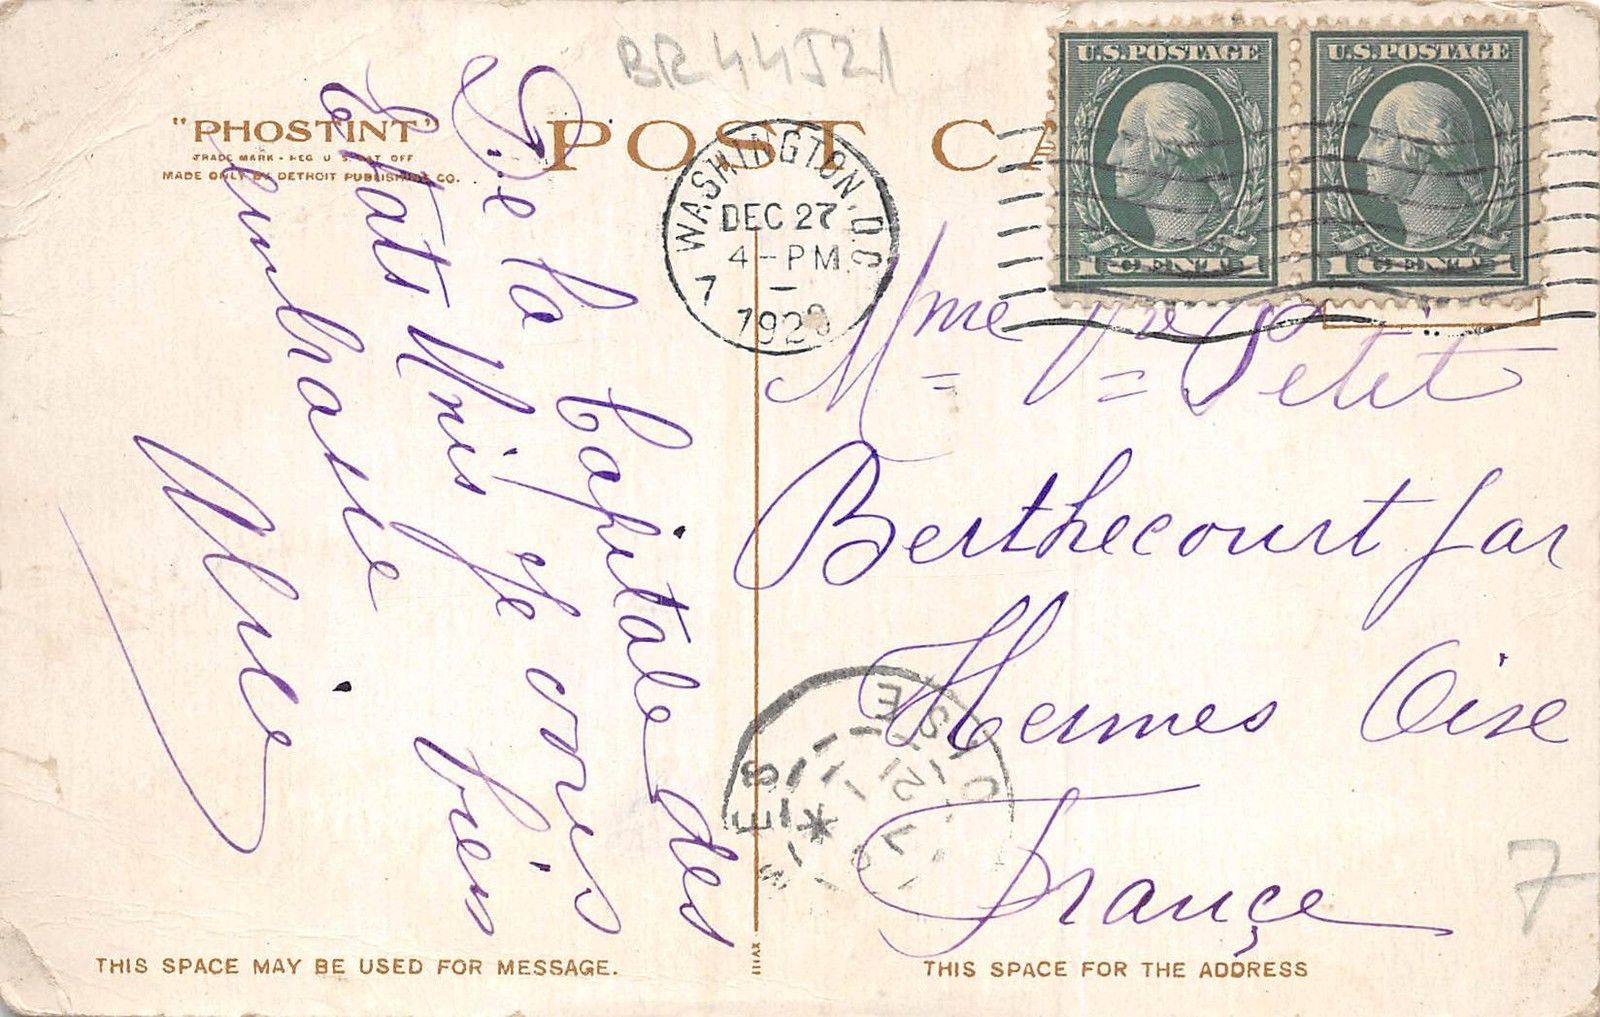 BR44521
"PHOSTINT"
TRADE MARK · REG U S PAT OFF
MADE ONLY BY DETROIT PUBLISHING CO.
POST CA
U.S. POSTAGE
U.S. POSTAGE
1 CENT 1
1 CENT 1
WASHINGTON, D.C.
DEC 27
4 - PM
7
192
De la Capitale des
Etats Unis je vous
embrasse bien
Alice
Mme Vve Petit
Berthecourt par
Hermes Oise
Françe
OISE
7
THIS SPACE MAY BE USED FOR MESSAGE.
THIS SPACE FOR THE ADDRESS